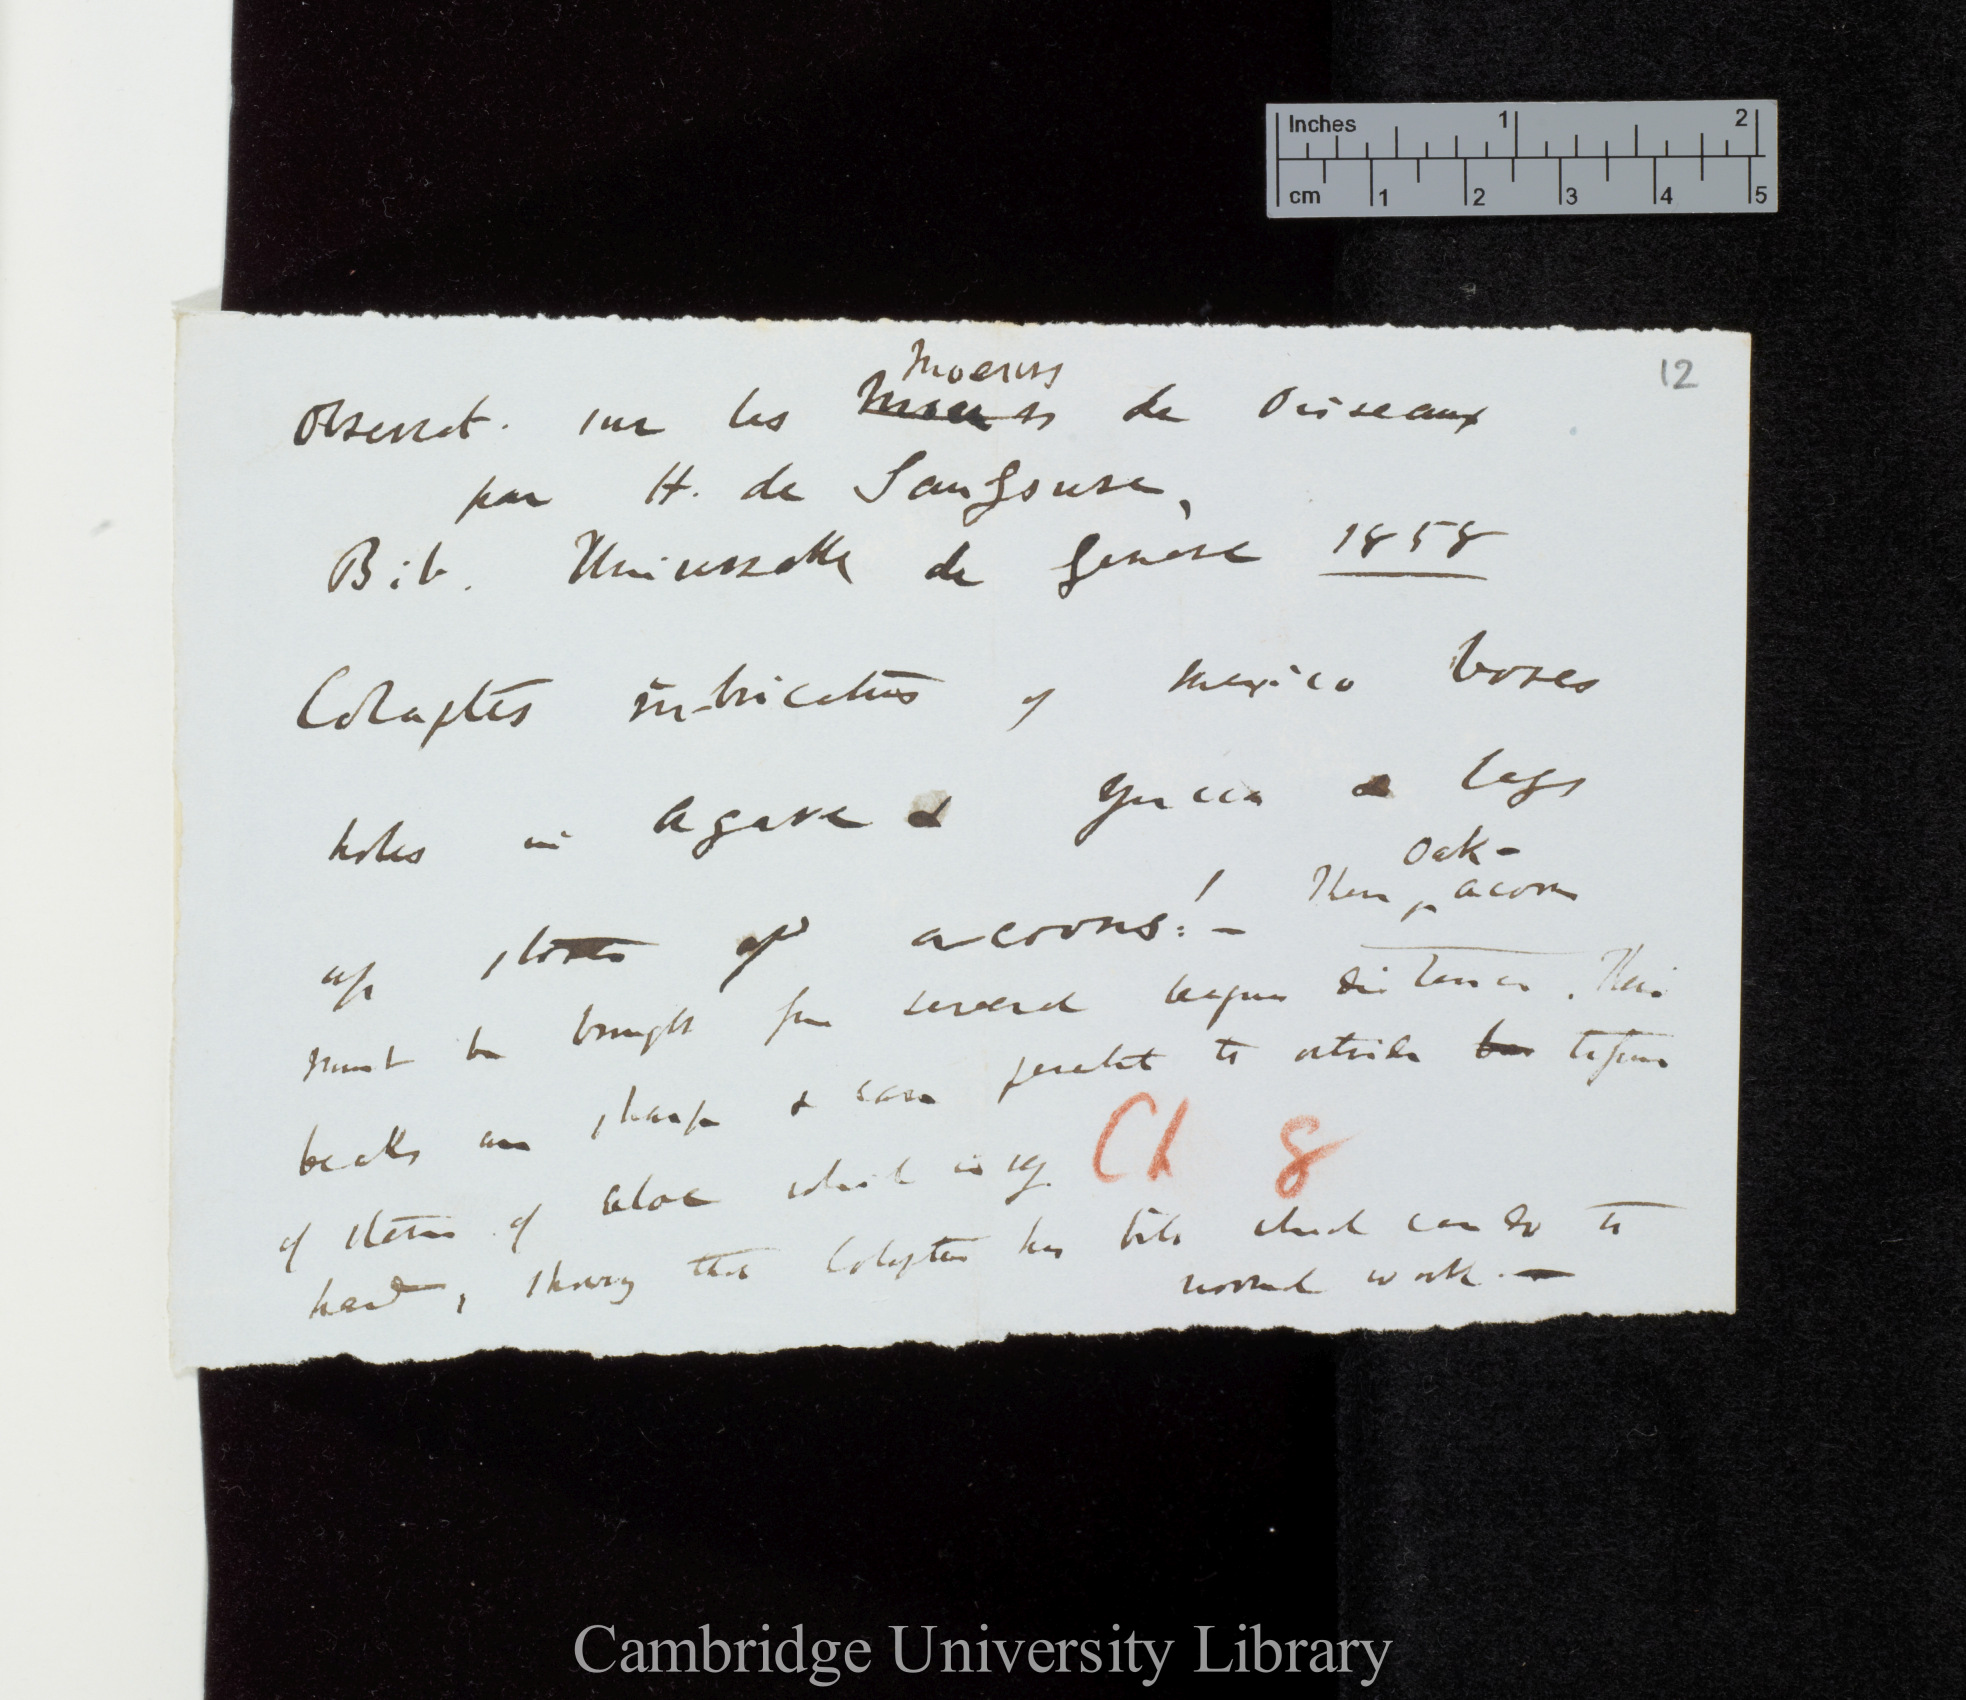 Inches 1 2
cm 1 2 3 4 5
12
Moeurs
Observat. sur les Moeurs de Oiseaux
par H. de Saussure,
Bib. Universelle de Geneve 1858
Colaptes rubricatus of Mexico bores
holes in Agave & Yucca & lays
oak-
up stores of acorns! - These acorns
must be brought from several leagues distance. Their
beaks are sharp & can to outside
of stems of aloe which is vy.
Ch 8
hard, showing that Colaptes has bill which can do its
normal work. —
Cambridge University Library